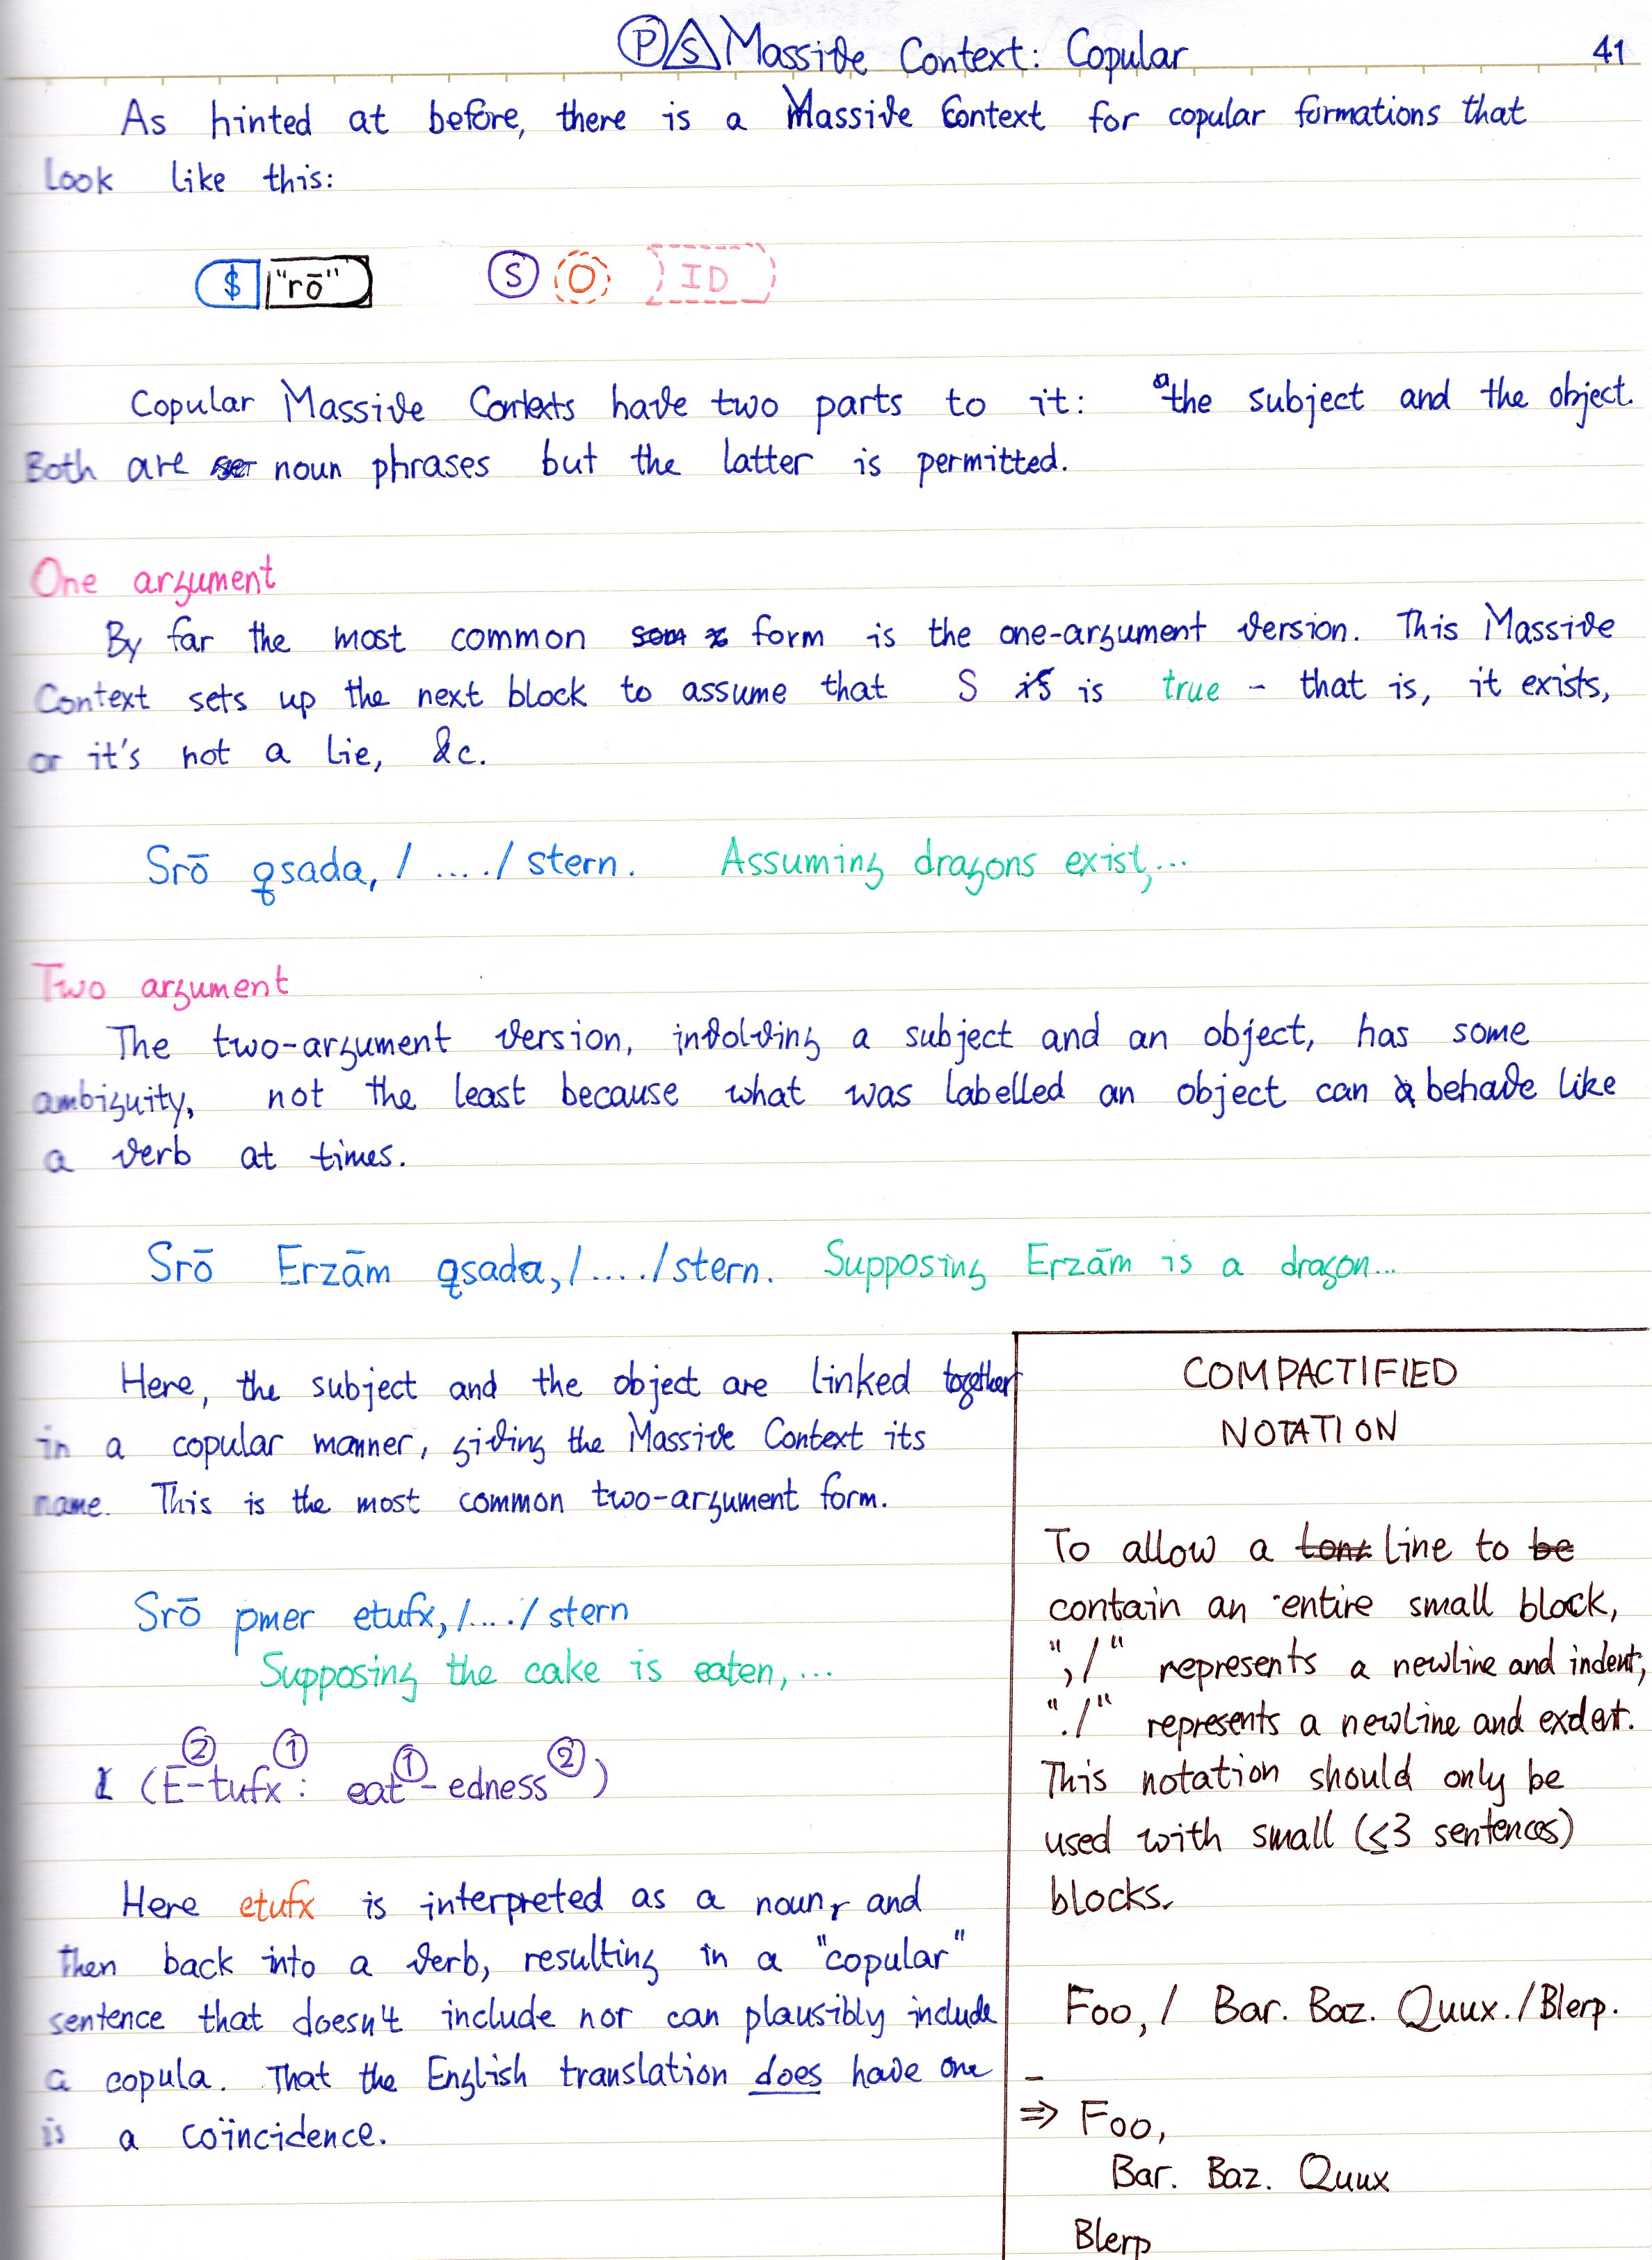 PS Massive Context: Copular 41
As hinted at before, there is a Massive Context for copular formations that
look like this:
$ "rō" S O ID
Copular Massive Contexts have two parts to it: the subject and the object.
Both are noun phrases but the latter is permitted.
One argument
By far the most common form is the one-argument version. This Massive
Context sets up the next block to assume that S is true - that is, it exists,
or it's not a lie, &c.
Srō qsada, / .... / stern. Assuming dragons exist,...
Two argument
The two-argument version, involving a subject and an object, has some
ambiguity, not the least because what was labelled an object can behave like
a verb at times.
Srō Erzām qsada, / .... / stern. Supposing Erzām is a dragon...
Here, the subject and the object are linked together
in a copular manner, giving the Massive Context its
name. This is the most common two-argument form.
Srō pmer etufx, / .... / stern
Supposing the cake is eaten, ...
② ① ① ②
(E-tufx: eat-edness)
Here etufx is interpreted as a noun, and
then back into a verb, resulting in a "copular"
sentence that doesn't include nor can plausibly include
a copula. That the English translation does have one
is a coïncidence.
COMPACTIFIED
NOTATION
To allow a line to be
contain an entire small block,
",/" represents a newline and indent,
"./" represents a newline and exdent.
This notation should only be
used with small (≤3 sentences)
blocks.
Foo, / Bar. Baz. Quux. / Blerp.
⇒ Foo,
Bar. Baz. Quux
Blerp